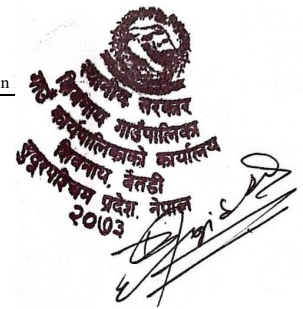 n
स्थानीय सरकार
शिवनाथ गाउँपालिका
गाउँ कार्यपालिकाको कार्यालय
शिवनाथ, बैतडी
सुदूरपश्चिम प्रदेश, नेपाल
२०७३